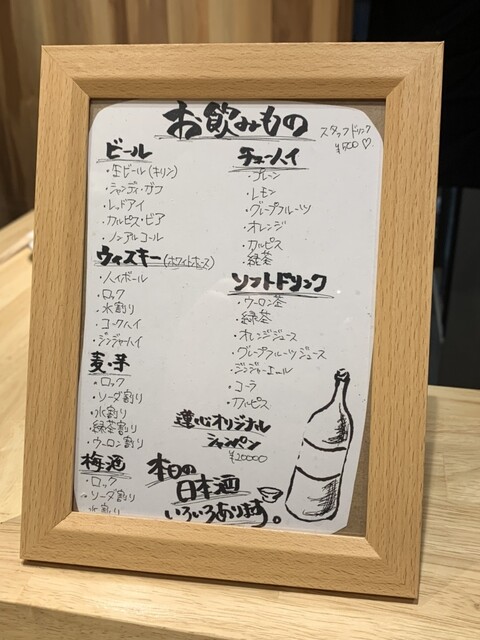 お飲みもの
スタッフドリンク
¥500♡
ビール
・生ビール(キリン)
・シャンディ・ガフ
・レッドアイ
・カルピス・ビア
・ノンアルコール
ウィスキー(ホワイトホース)
・ハイボール
・ロック
・水割り
・コークハイ
・ジンジャーハイ
麦・芋
・ロック
・ソーダ割り
・水割り
・緑茶割り
・ウーロン割り
梅酒
・ロック
・ソーダ割り
・水割り
チューハイ
・プレーン
・レモン
・グレープフルーツ
・オレンジ
・カルピス
・緑茶
ソフトドリンク
・ウーロン茶
・緑茶
・オレンジジュース
・グレープフルーツジュース
・ジンジャーエール
・コーラ
・カルピス
蓮心オリジナル
シャンパン
¥20000
本日の
日本酒
いろいろあります。